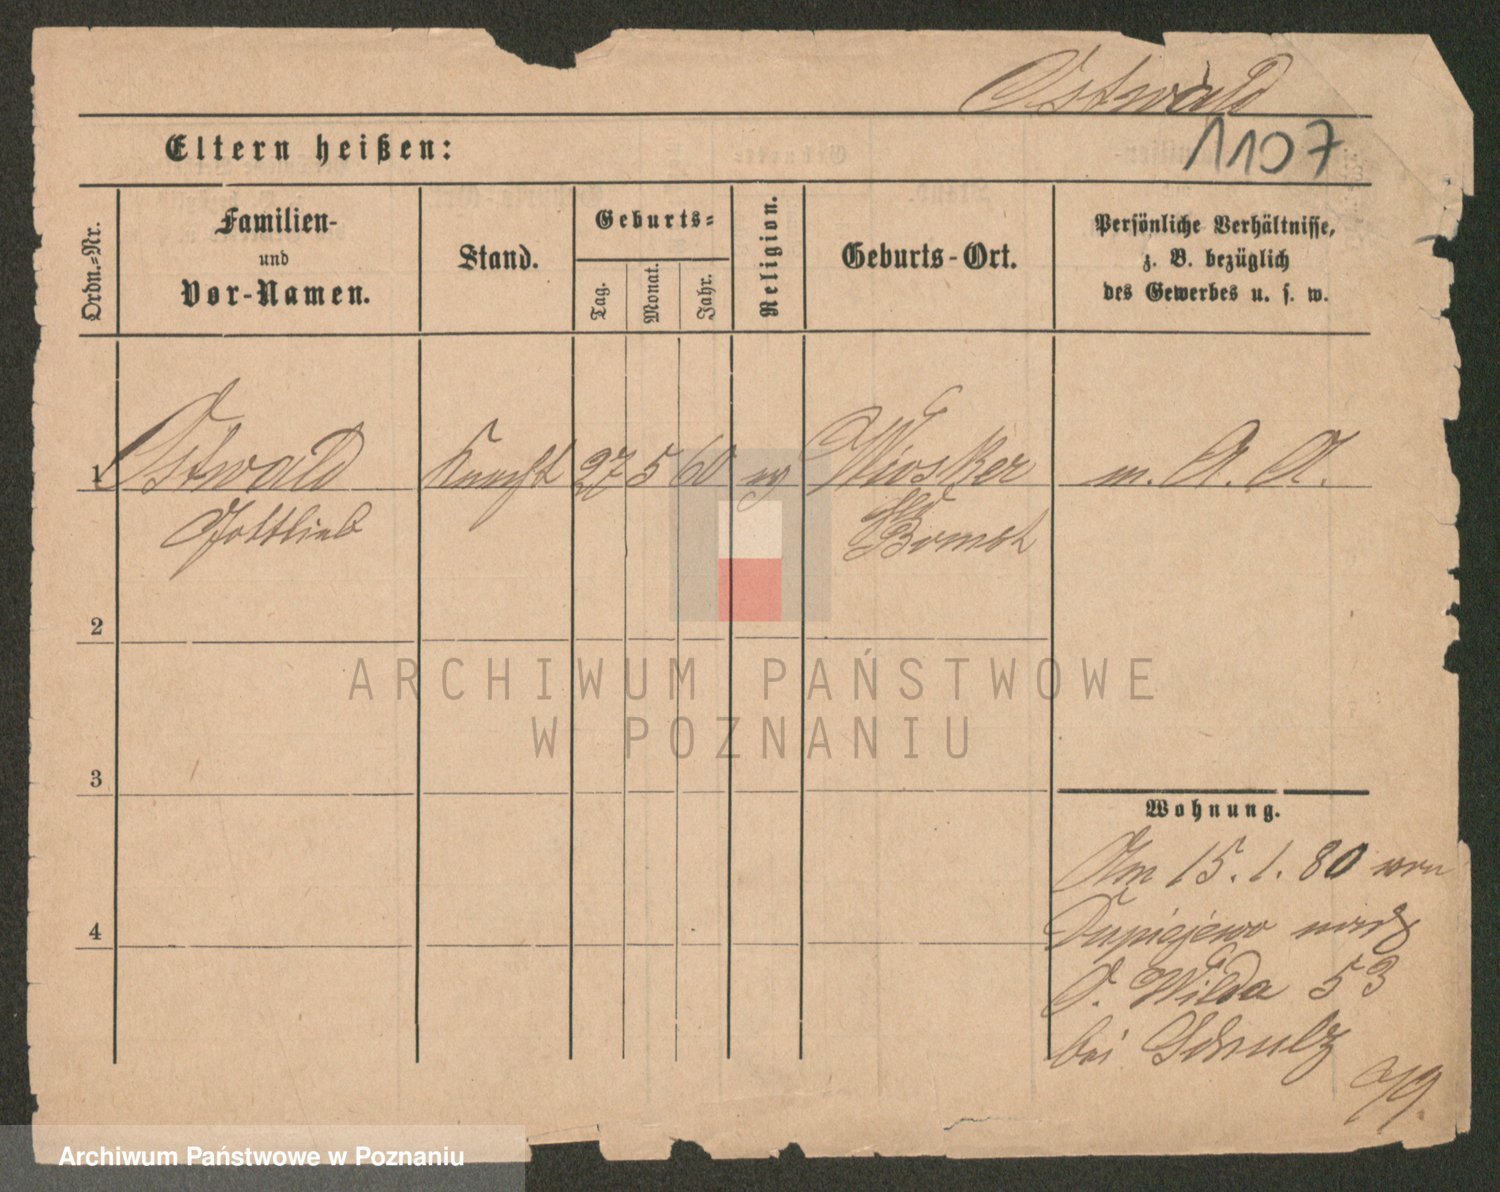 Ostwald
1107
Eltern heißen:
Ordn.-Nr.
Familien-
und
Vor-Namen.
Stand.
Geburts-
Tag.
Monat.
Jahr.
Religion.
Geburts-Ort.
Persönliche Verhältnisse,
z. B. bezüglich
des Gewerbes u. s. w.
1 Ostwald Knecht 27 5 60 Wiosker m. A. A.
Gottlieb Bomst
2
3
4
Wohnung.
Am 15.1.80 von
nach
O. Wilda 53
bei Schulz
ARCHIWUM PAŃSTWOWE
W POZNANIU
Archiwum Państwowe w Poznaniu